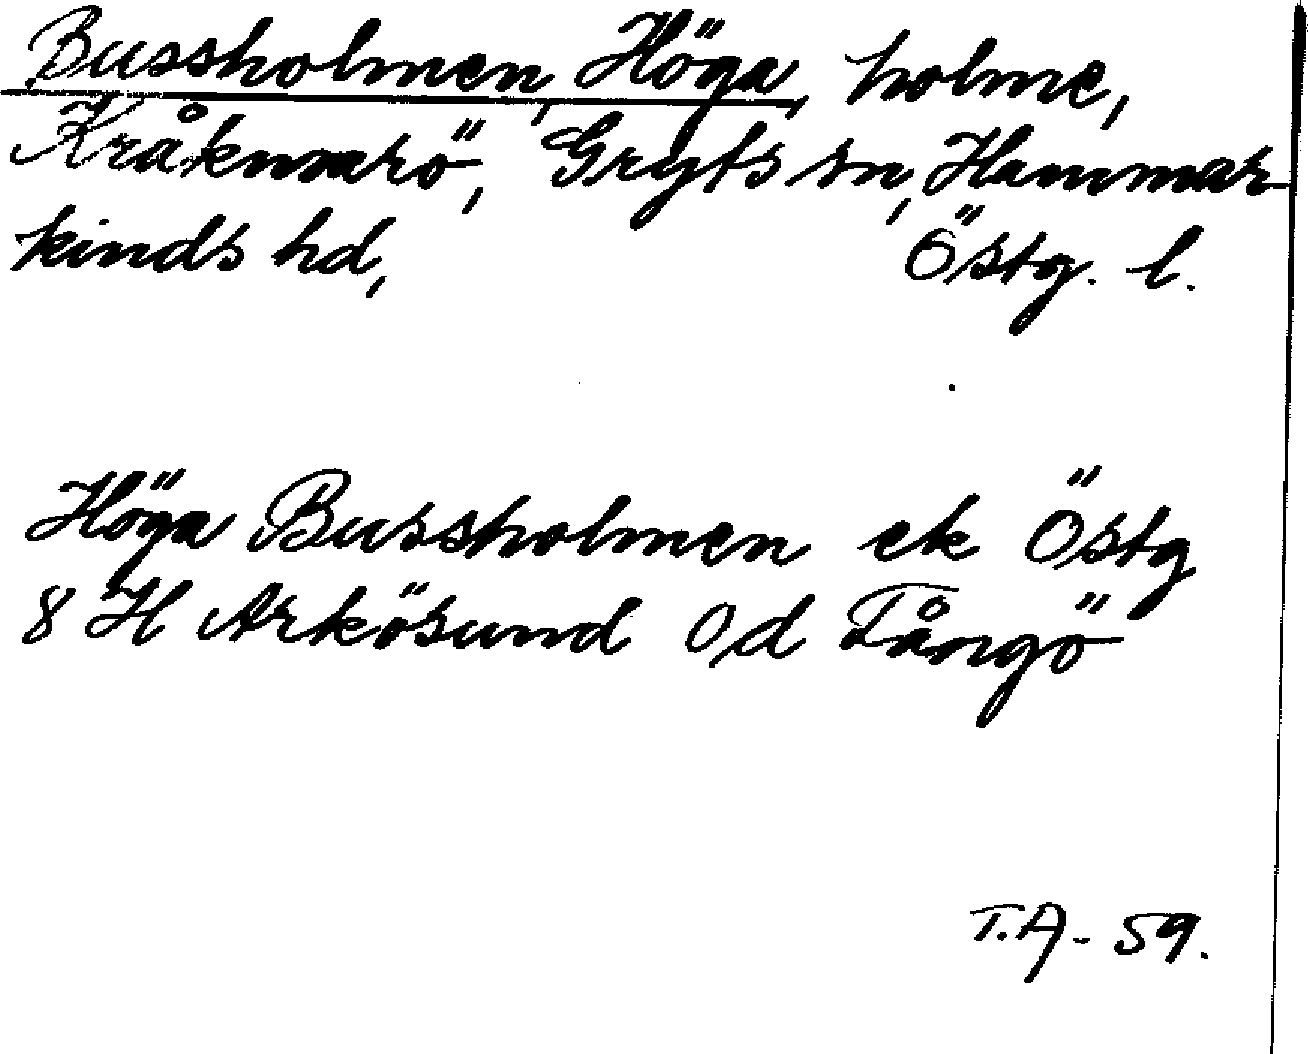 Bussholmen, Höga, holme,
Kråkmarö, Gryts sn, Hammar-
kinds hd, Östg. l.
Höga Bussholmen ek Östg
8 H Arkösund Od Fångö
T.A- 59.